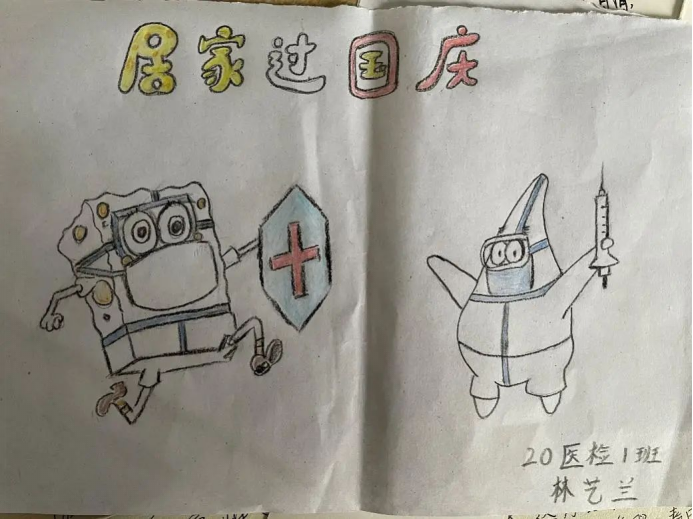 居家过国庆
20医检1班
林艺兰